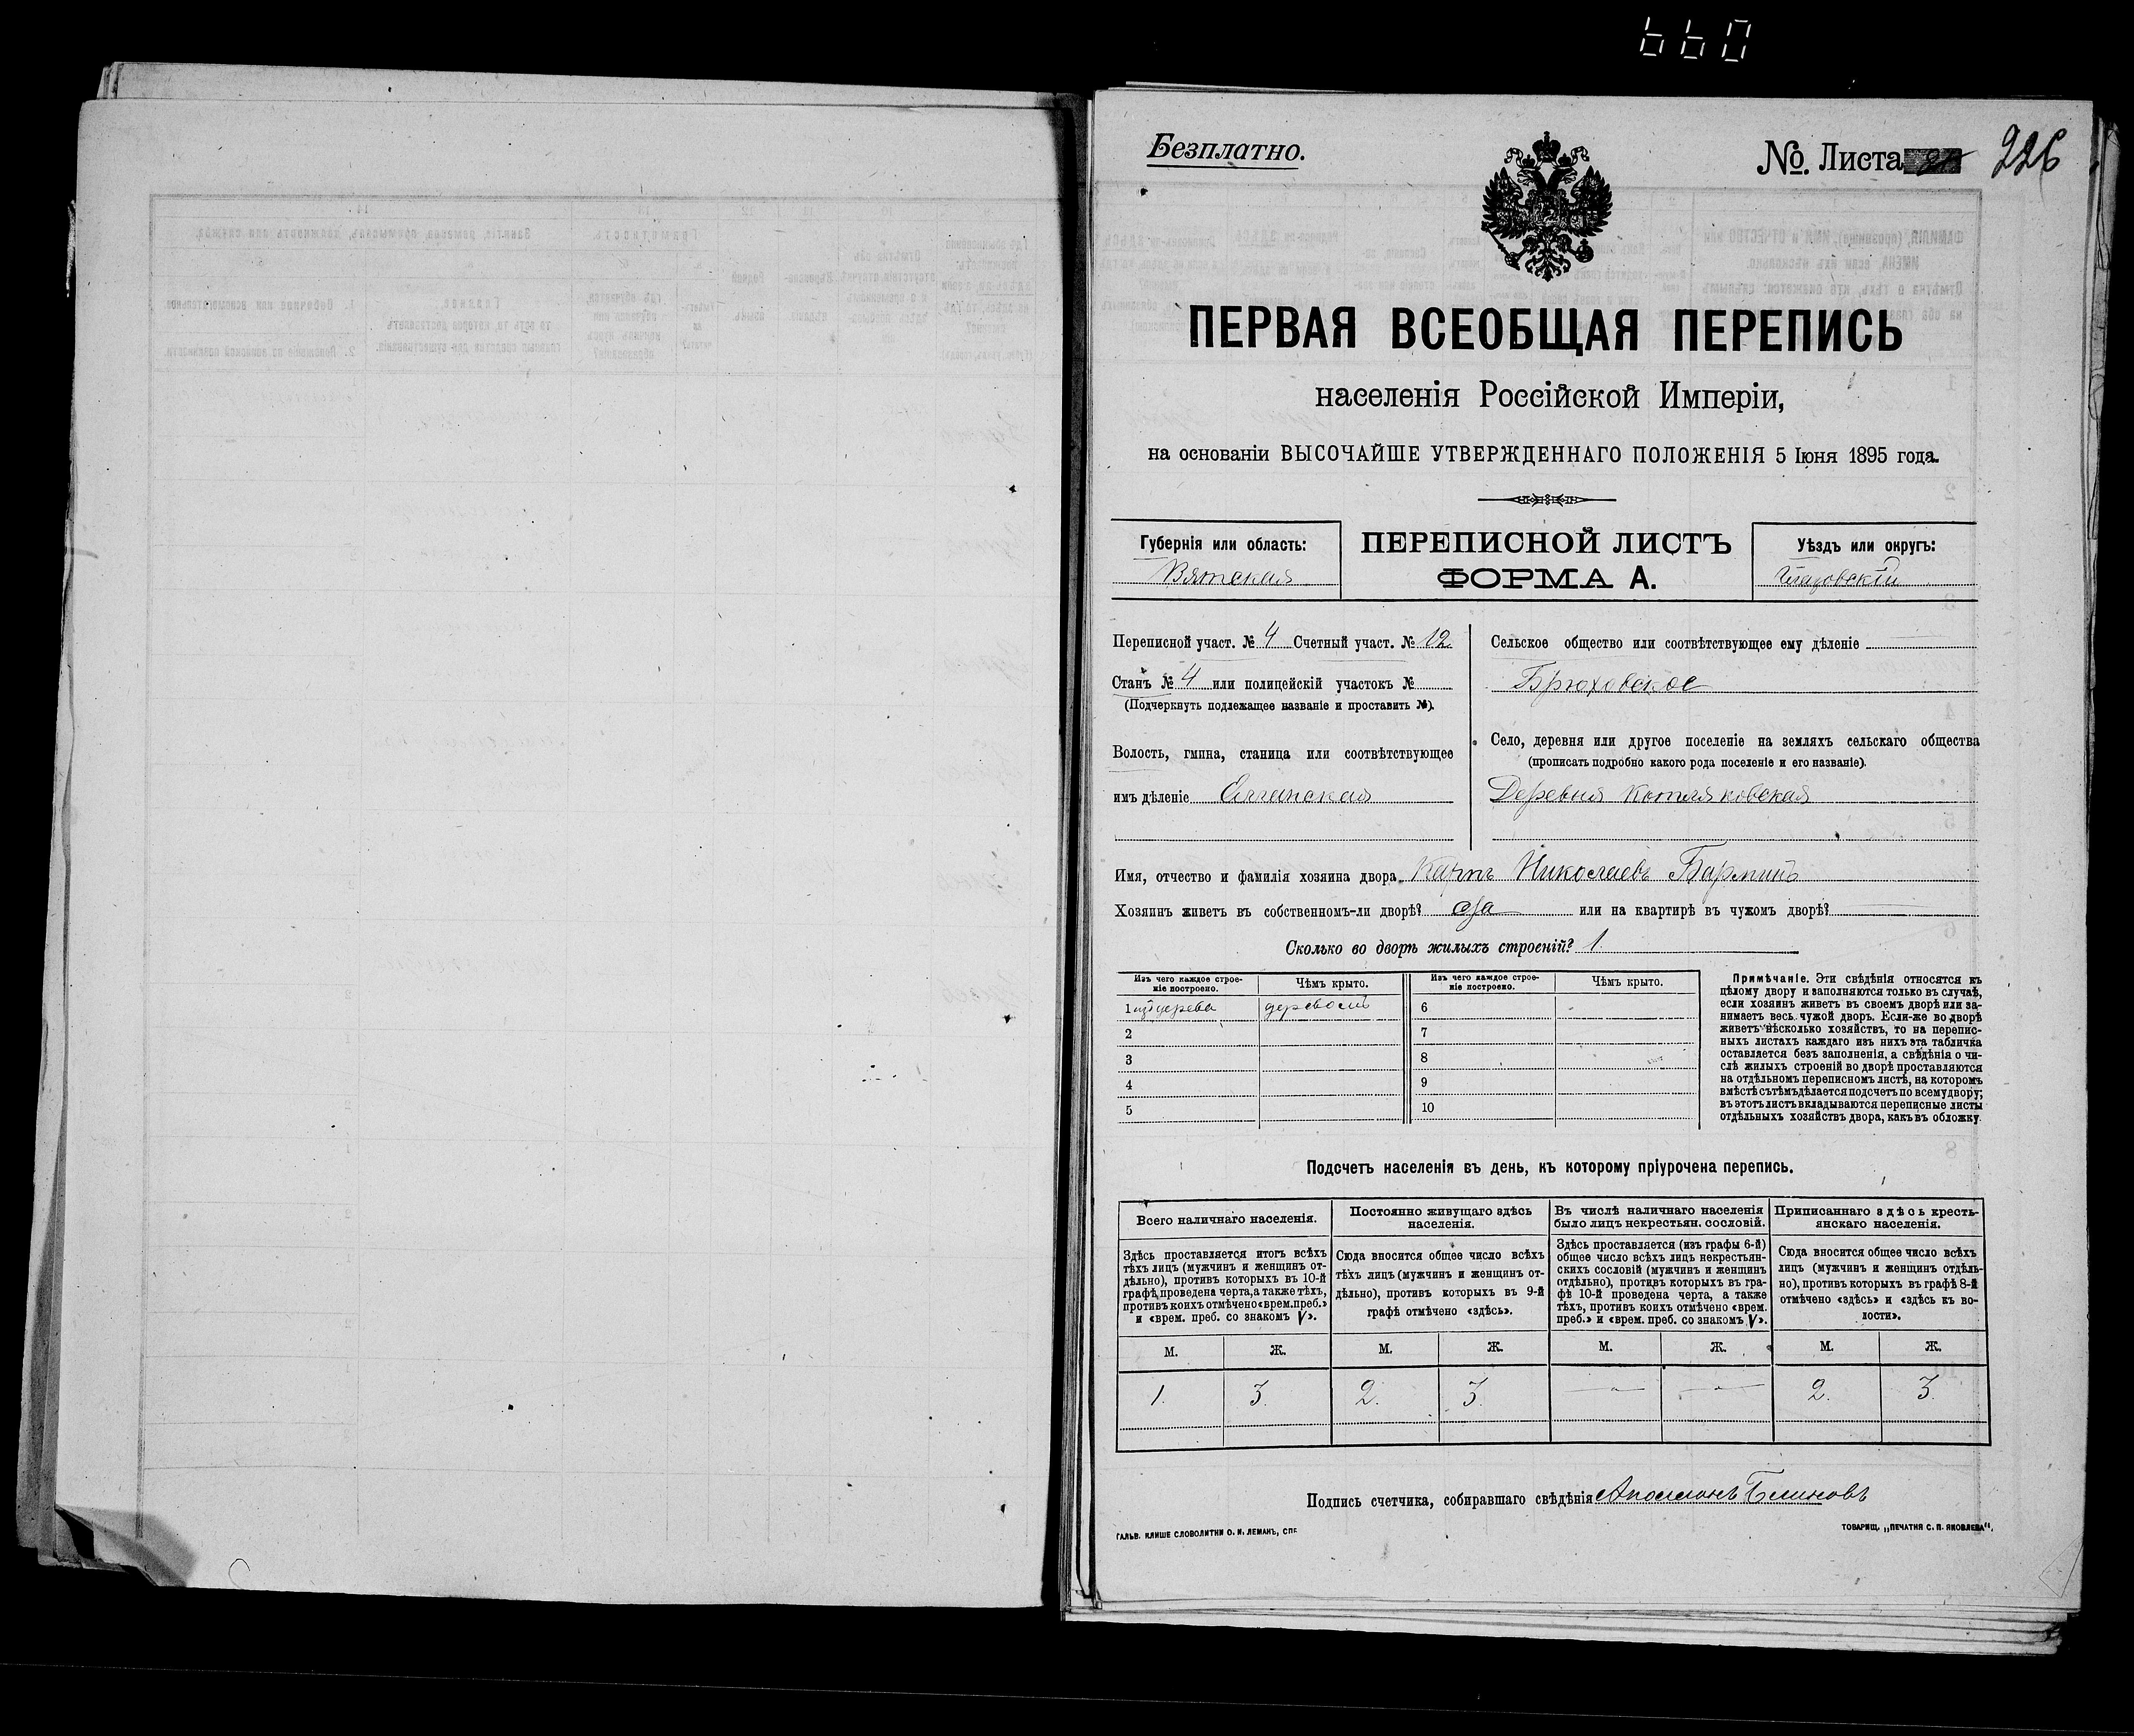 660
Безплатно.
№. Листа 226
ПЕРВАЯ ВСЕОБЩАЯ ПЕРЕПИСЬ
населенія Россійской Имперіи,
на основаніи ВЫСОЧАЙШЕ УТВЕРЖДЕННАГО ПОЛОЖЕНІЯ 5 Іюня 1895 года.
Губернія или область:
Вятская
ПЕРЕПИСНОЙ ЛИСТЪ
ФОРМА А.
Уѣздъ или округъ:
Глазовскій
Переписной участ. № 4 Счетный участ. № 12
Станъ № 4 или полицейскій участокъ №
(Подчеркнуть подлежащее названіе и проставить №).
Волость, гмина, станица или соотвѣтствующее
имъ дѣленіе Елганская
Сельское общество или соотвѣтствующее ему дѣленіе
Брюховское
Село, деревня или другое поселеніе на земляхъ сельскаго общества
(прописать подробно какого рода поселеніе и его названіе).
Деревня Котляковская
Имя, отчество и фамилія хозяина двора Карпъ Николаевъ Барминъ
Хозяинъ живетъ въ собственномъ-ли дворѣ? да или на квартирѣ въ чужомъ дворѣ?
Сколько во дворѣ жилыхъ строеній? 1.
Изъ чего каждое строе-
ніе построено.
Чѣмъ крыто.
Изъ чего каждое строе-
ніе построено.
Чѣмъ крыто.
1 изъ дерева деревомъ 6
2 7
3 8
4 9
5 10
Примѣчаніе. Эти свѣдѣнія относятся къ
цѣлому двору и заполняются только въ случаѣ,
если хозяинъ живетъ въ своемъ дворѣ или за-
нимаетъ весь чужой дворъ. Если-же во дворѣ
живетъ нѣсколько хозяйствъ, то на перепис-
ныхъ листахъ каждаго изъ нихъ эта табличка
оставляется безъ заполненія, а свѣдѣнія о чи-
слѣ жилыхъ строеній во дворѣ проставляются
на отдѣльномъ переписномъ листѣ, на которомъ
вмѣстѣ съ тѣмъ дѣлается подсчетъ по всему двору;
въ этотъ листъ вкладываются переписные листы
отдѣльныхъ хозяйствъ двора, какъ въ обложку.
Подсчетъ населенія въ день, къ которому пріурочена перепись.
Всего наличнаго населенія.
Здѣсь проставляется итогъ всѣхъ
тѣхъ лицъ (мужчинъ и женщинъ от-
дѣльно), противъ которыхъ въ 10-й
графѣ проведена черта, а также тѣхъ,
противъ коихъ отмѣчено «врем. преб.»
и «врем. преб. со знакомъ V».
Постоянно живущаго здѣсь
населенія.
Сюда вносится общее число всѣхъ
тѣхъ лицъ (мужчинъ и женщинъ от-
дѣльно), противъ которыхъ въ 9-й
графѣ отмѣчено «здѣсь».
Въ числѣ наличнаго населенія
было лицъ некрестьян. сословій.
Здѣсь проставляется (изъ графы 6-й)
общее число всѣхъ лицъ некрестьян-
скихъ сословій (мужчинъ и женщинъ
отдѣльно), противъ которыхъ въ гра-
фѣ 10-й проведена черта, а также
тѣхъ, противъ коихъ отмѣчено «врем.
преб.» и «врем. преб. со знакомъ V».
Приписаннаго здѣсь кресть-
янскаго населенія.
Сюда вносится общее число всѣхъ
лицъ (мужчинъ и женщинъ отдѣль-
но), противъ которыхъ въ графѣ 8-й
отмѣчено «здѣсь» и «здѣсь къ во-
лости».
М. Ж. М. Ж. М. Ж. М. Ж.
1. 3. 2. 3. — — 2. 3.
Подпись счетчика, собиравшаго свѣдѣнія Аполлонъ Блиновъ
ГАЛЬВ. КЛИШЕ СЛОВОЛИТНИ О. И. ЛЕМАНЪ, СПБ.
ТОВАРИЩ. „ПЕЧАТНЯ С. П. ЯКОВЛЕВА“.